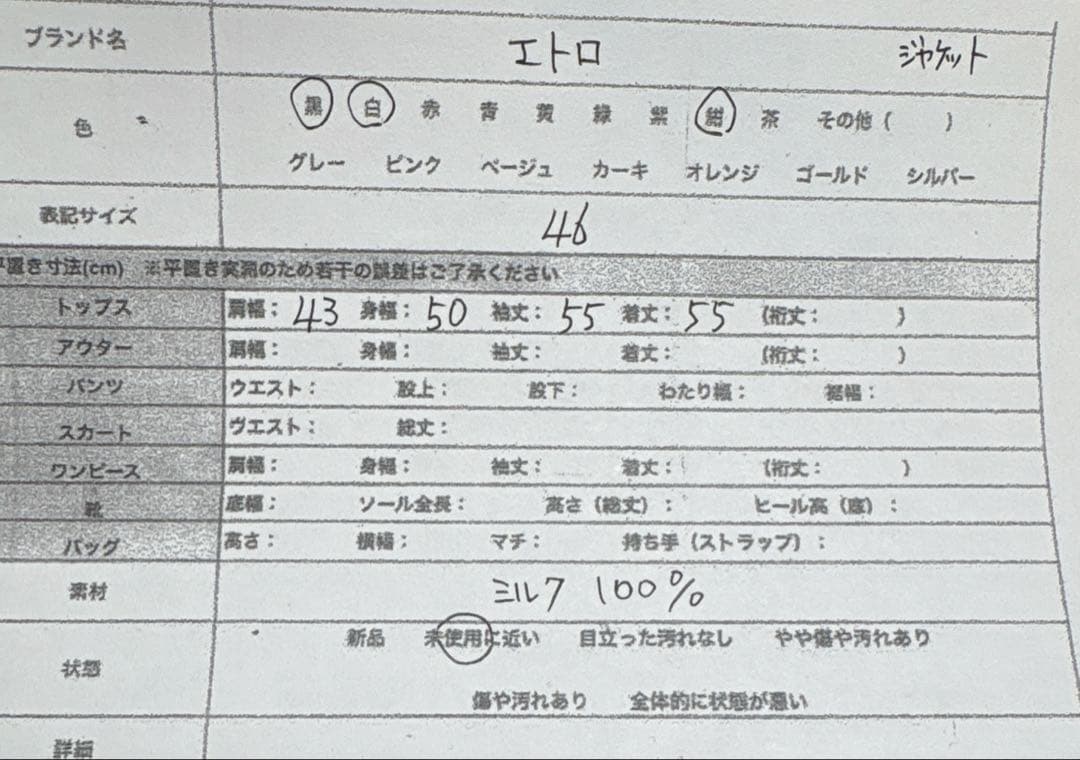 ブランド名 エトロ ジャケット
色 黒 白 赤 青 黄 緑 紫 紺 茶 その他 ( )
グレー ピンク ベージュ カーキ オレンジ ゴールド シルバー
表記サイズ 46
平置き寸法(cm) ※平置き実測のため若干の誤差はご了承ください
トップス 肩幅: 43 身幅: 50 袖丈: 55 着丈: 55 (裄丈: )
アウター 肩幅: 身幅: 袖丈: 着丈: (裄丈: )
パンツ ウエスト: 股上: 股下: わたり幅: 裾幅:
スカート ウエスト: 総丈:
ワンピース 肩幅: 身幅: 袖丈: 着丈: (裄丈: )
靴 底幅: ソール全長: 高さ(総丈): ヒール高(底):
バッグ 高さ: 横幅: マチ: 持ち手(ストラップ):
素材 ミルク 100%
状態 新品 未使用に近い 目立った汚れなし やや傷や汚れあり
傷や汚れあり 全体的に状態が悪い
詳細